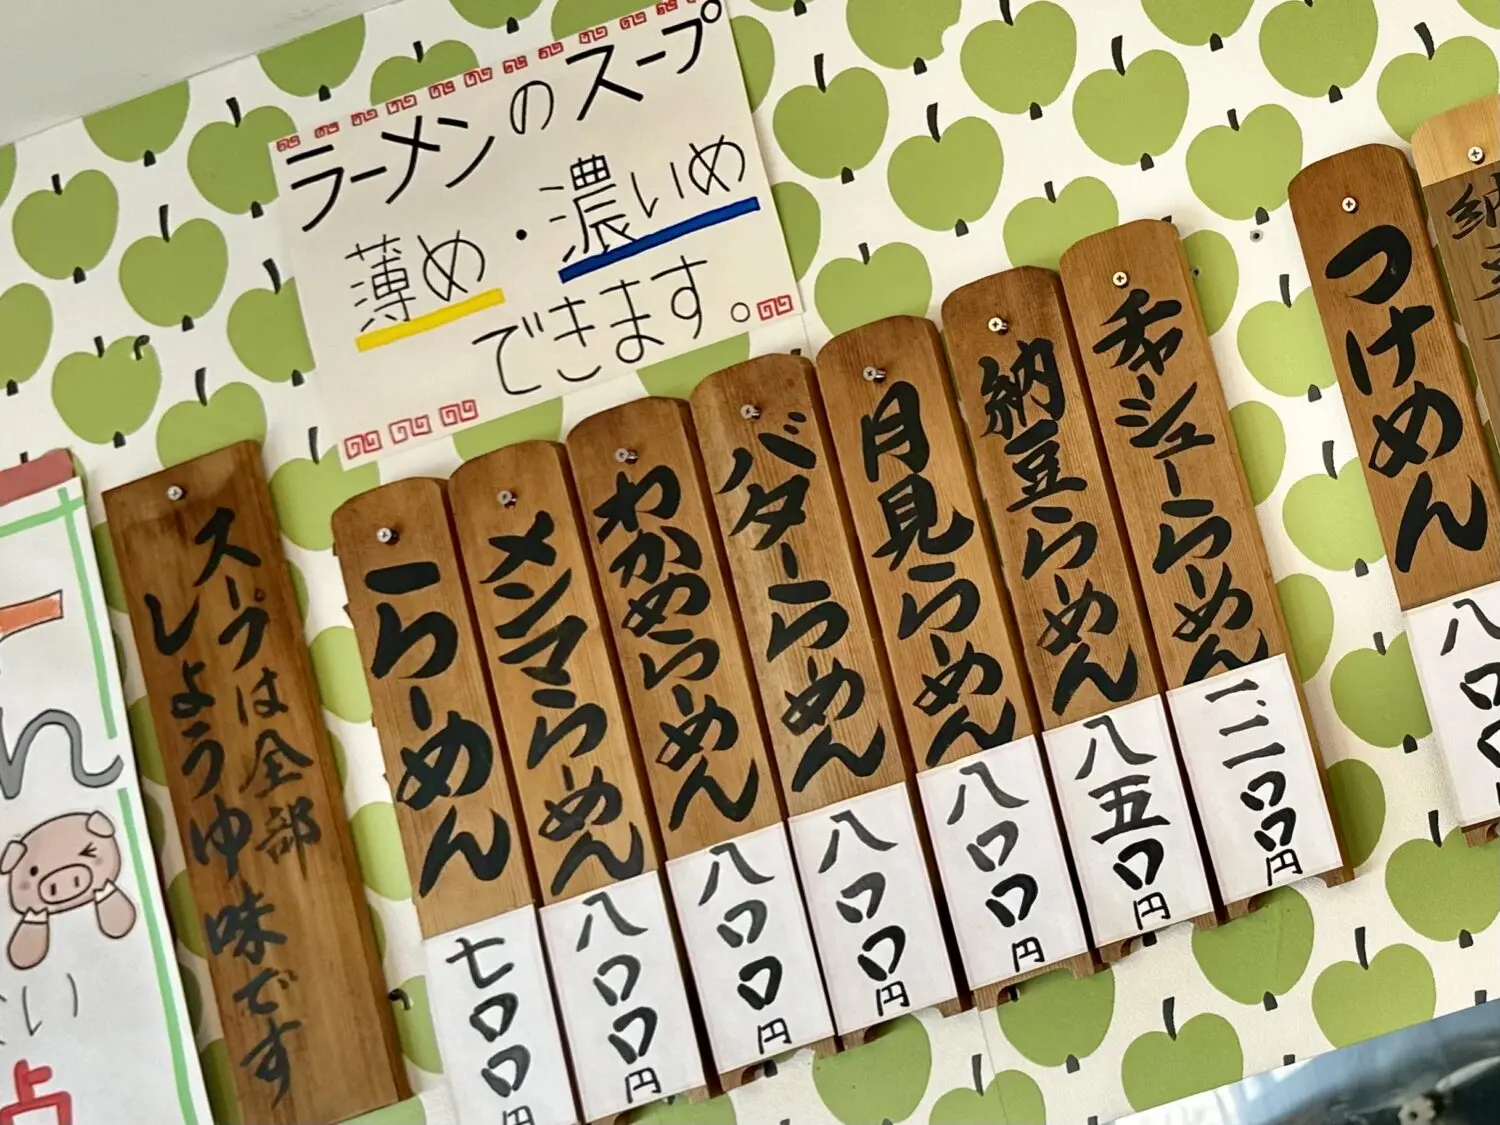 ラーメンのスープ
薄め・濃いめ
できます。
スープは全部
しょうゆ味です
らーめん
七〇〇円
メンマらーめん
八〇〇円
わかめらーめん
八〇〇円
バターらーめん
八〇〇円
月見らーめん
八〇〇円
納豆らーめん
八五〇円
チャーシューらーめん
一、二〇〇円
つけめん
八〇〇
納豆